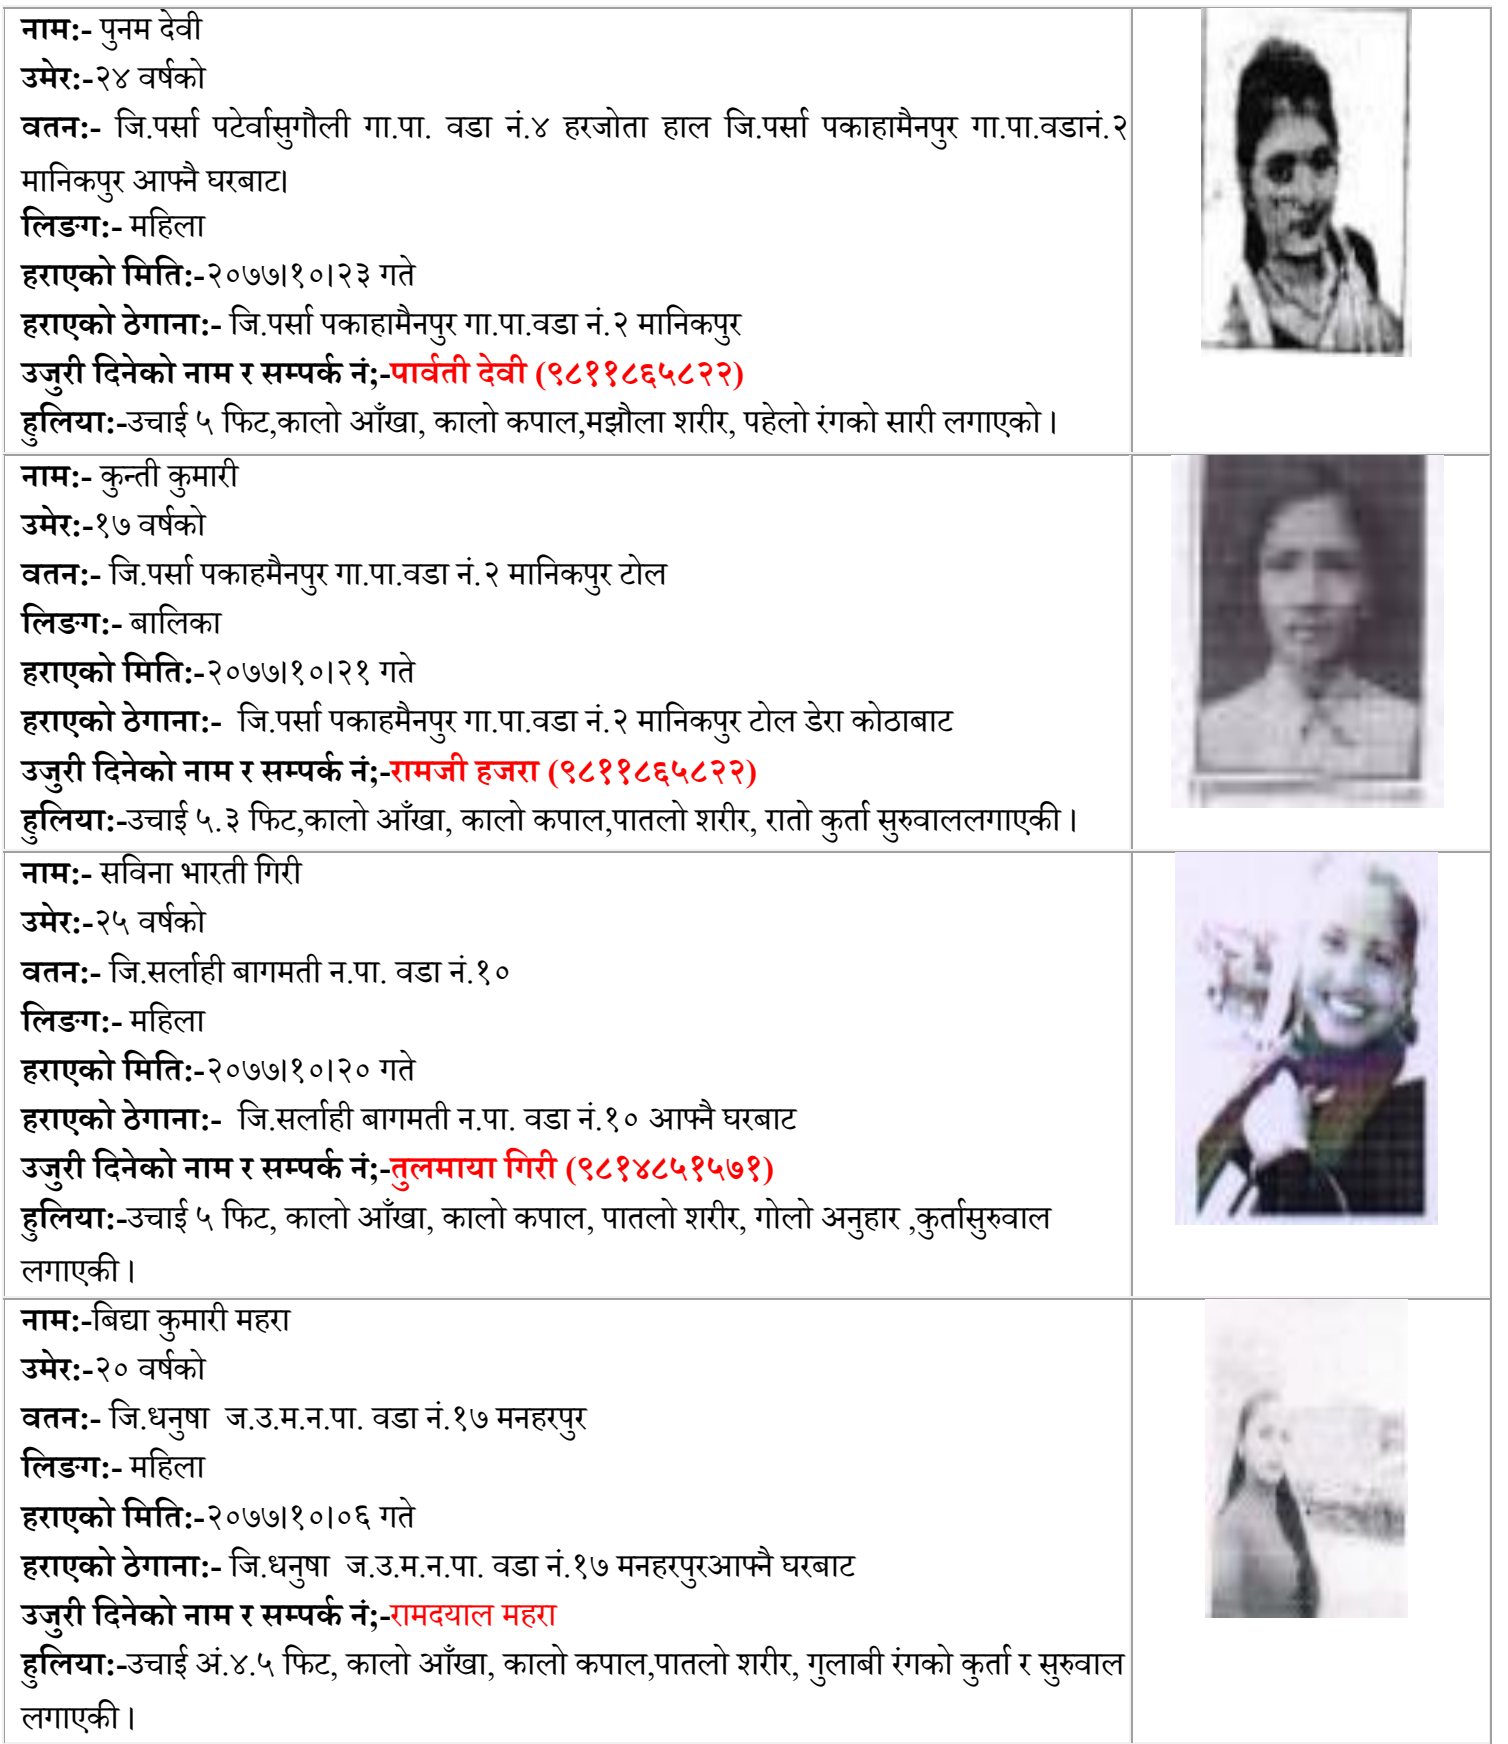 नाम:- पुनम देवी
उमेर:-२४ वर्षको
वतन:- जि.पर्सा पटेर्वासुगौली गा.पा. वडा नं.४ हरजोता हाल जि.पर्सा पकाहामैनपुर गा.पा.वडानं.२
मानिकपुर आफ्नै घरबाट।
लिङग:- महिला
हराएको मिति:-२०७७।१०।२३ गते
हराएको ठेगाना:- जि.पर्सा पकाहामैनपुर गा.पा.वडा नं.२ मानिकपुर
उजुरी दिनेको नाम र सम्पर्क नं;-पार्वती देवी (९८११८६५८२२)
हुलिया:-उचाई ५ फिट,कालो आँखा, कालो कपाल,मझौला शरीर, पहेलो रंगको सारी लगाएको ।
नाम:- कुन्ती कुमारी
उमेर:-१७ वर्षको
वतन:- जि.पर्सा पकाहमैनपुर गा.पा.वडा नं.२ मानिकपुर टोल
लिङग:- बालिका
हराएको मिति:-२०७७।१०।२१ गते
हराएको ठेगाना:- जि.पर्सा पकाहमैनपुर गा.पा.वडा नं.२ मानिकपुर टोल डेरा कोठाबाट
उजुरी दिनेको नाम र सम्पर्क नं;-रामजी हजरा (९८११८६५८२२)
हुलिया:-उचाई ५.३ फिट,कालो आँखा, कालो कपाल,पातलो शरीर, रातो कुर्ता सुरुवाललगाएकी ।
नाम:- सविना भारती गिरी
उमेर:-२५ वर्षको
वतन:- जि.सर्लाही बागमती न.पा. वडा नं.१०
लिङग:- महिला
हराएको मिति:-२०७७।१०।२० गते
हराएको ठेगाना:- जि.सर्लाही बागमती न.पा. वडा नं.१० आफ्नै घरबाट
उजुरी दिनेको नाम र सम्पर्क नं;-तुलमाया गिरी (९८१४८५१५७१)
हुलिया:-उचाई ५ फिट, कालो आँखा, कालो कपाल, पातलो शरीर, गोलो अनुहार ,कुर्तासुरुवाल
लगाएकी ।
नाम:-बिद्या कुमारी महरा
उमेर:-२० वर्षको
वतन:- जि.धनुषा ज.उ.म.न.पा. वडा नं.१७ मनहरपुर
लिङग:- महिला
हराएको मिति:-२०७७।१०।०६ गते
हराएको ठेगाना:- जि.धनुषा ज.उ.म.न.पा. वडा नं.१७ मनहरपुरआफ्नै घरबाट
उजुरी दिनेको नाम र सम्पर्क नं;-रामदयाल महरा
हुलिया:-उचाई अं.४.५ फिट, कालो आँखा, कालो कपाल,पातलो शरीर, गुलाबी रंगको कुर्ता र सुरुवाल
लगाएकी ।